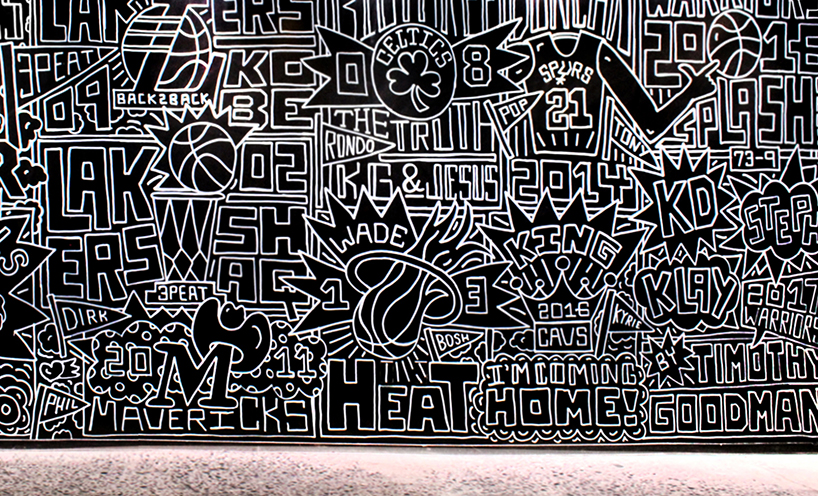 LAKERS
3PEAT
09
BACK2BACK
KOBE
CELTICS
08
THE
TRUTH
RONDO
KG & JESUS
SPURS
21
POP
TONY
2014
WARRIORS
SPLASH
73-9
LAK
ERS
02
SHAQ
3PEAT
WADE
13
BOSH
HEAT
KING
2016
CAVS
KYRIE
I'M COMING
HOME!
KD
STEPH
KLAY
2017
WARRIORS
DIRK
2011
M
MAVERICKS
PHIL
BY TIMOTHY
GOODMAN